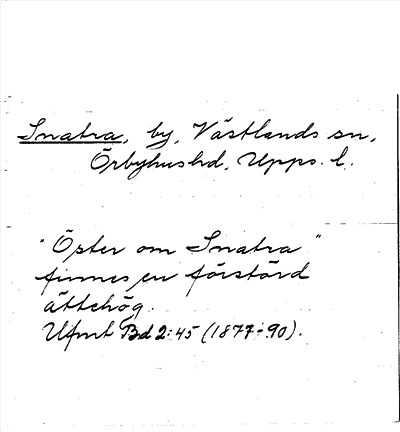 Snatra, by, Västlands sn,
Örbyhushd, Upps. l.
"Öster om Snatra"
finnes en förstörd
ättehög.
Ufmt Bd 2:45 (1877-90).